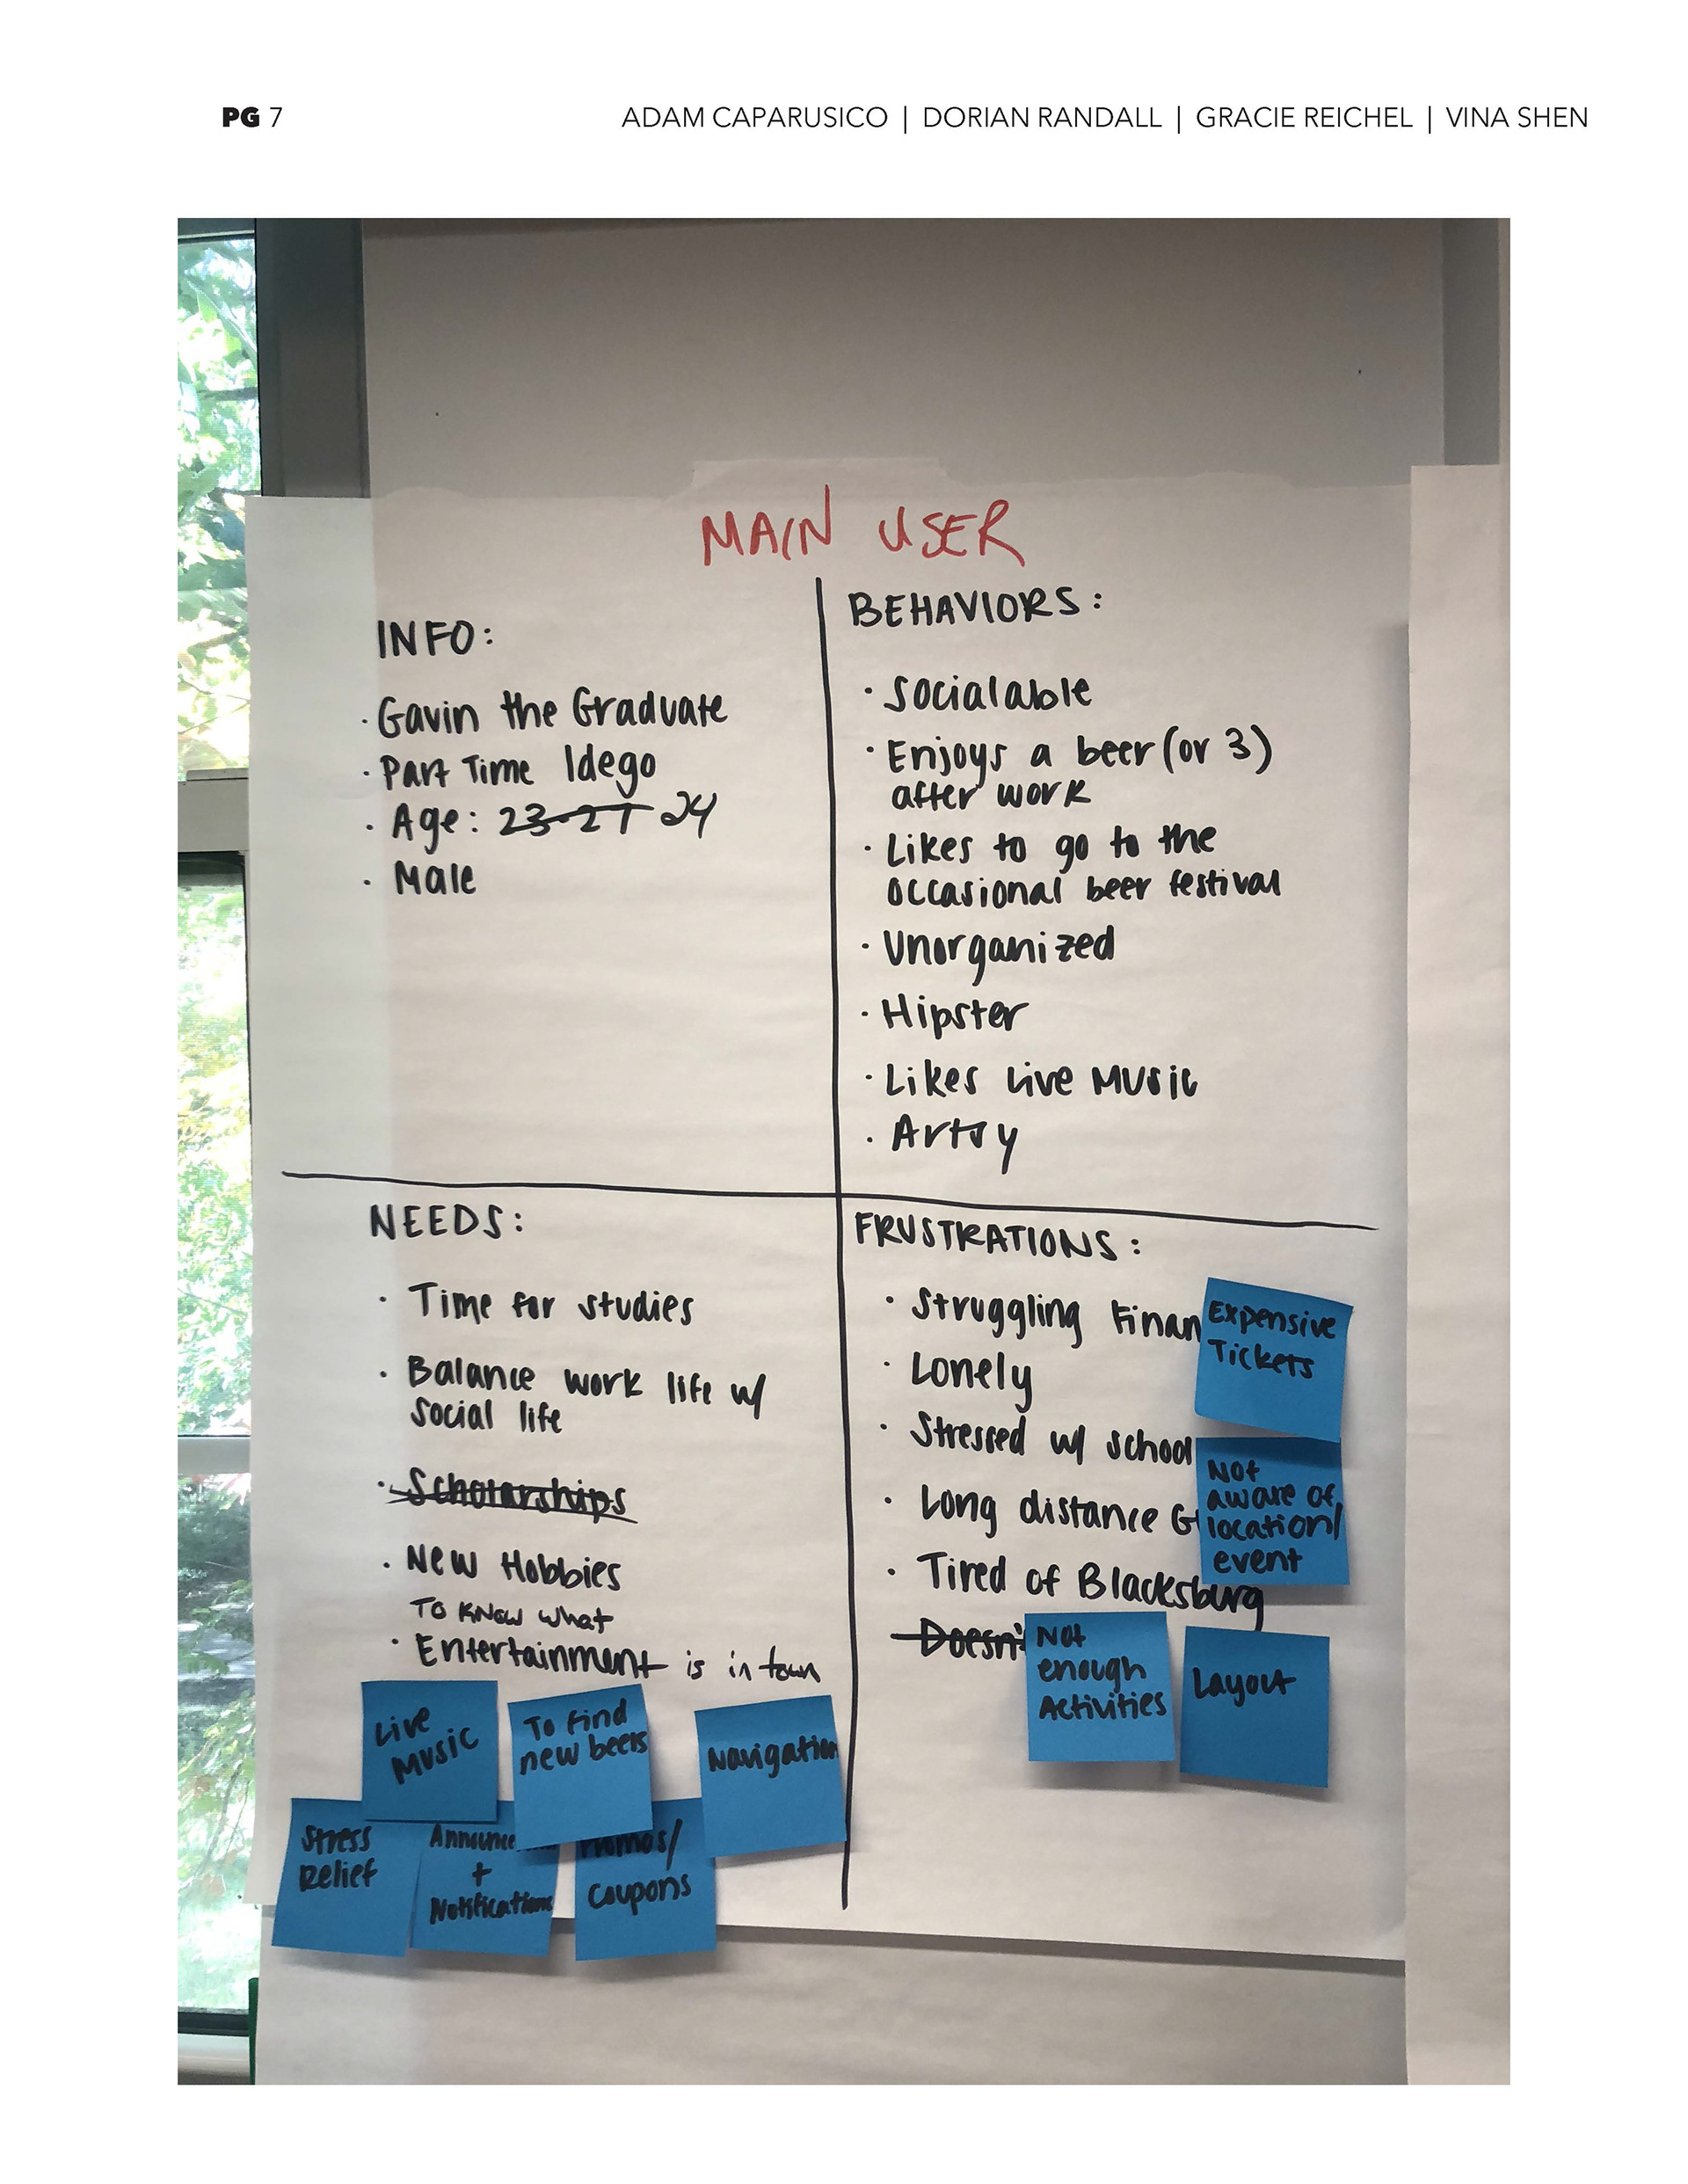 PG 7
ADAM CAPARUSICO | DORIAN RANDALL | GRACIE REICHEL | VINA SHEN
MAIN USER
INFO:
· Gavin the Graduate
· Part Time Idego
· Age: 23-27 24
· Male
BEHAVIORS:
· Socialable
· Enjoys a beer (or 3)
after work
· Likes to go to the
occasional beer festival
· Unorganized
· Hipster
· Likes Live Music
· Artsy
NEEDS:
· Time for studies
· Balance work life w/
Social life
· Scholarships
· New Hobbies
To know what
· Entertainment is in town
Live
Music
To find
new beers
Navigation
Stress
Relief
+
Notifications
Coupons
FRUSTRATIONS:
· Struggling
· Lonely
· Stressed w/ school
· Long distance
· Tired of Blacksburg
Expensive
Tickets
Not
aware of
location/
event
Not
enough
Activities
Layout